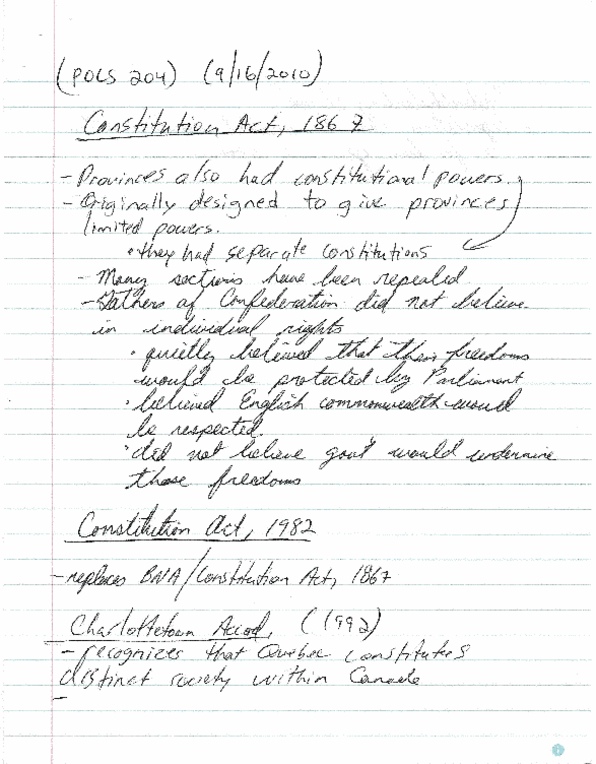 (POLS 204) (9/16/2010)
Constitution Act, 1867
- Provinces also had constitutional powers.
- Originally designed to give provinces
limited powers.
• they had separate constitutions
- Many sections have been repealed
- Fathers of Confederation did not believe
in individual rights
• quietly believed that their freedoms
would be protected by Parliament
• believed English commonwealth would
be respected.
• did not believe gov't would undermine
those freedoms
Constitution Act, 1982
- replaces BNA/Constitution Act, 1867
Charlottetown Accord, (1992)
- recognizes that Quebec constitutes
distinct society within Canada
-